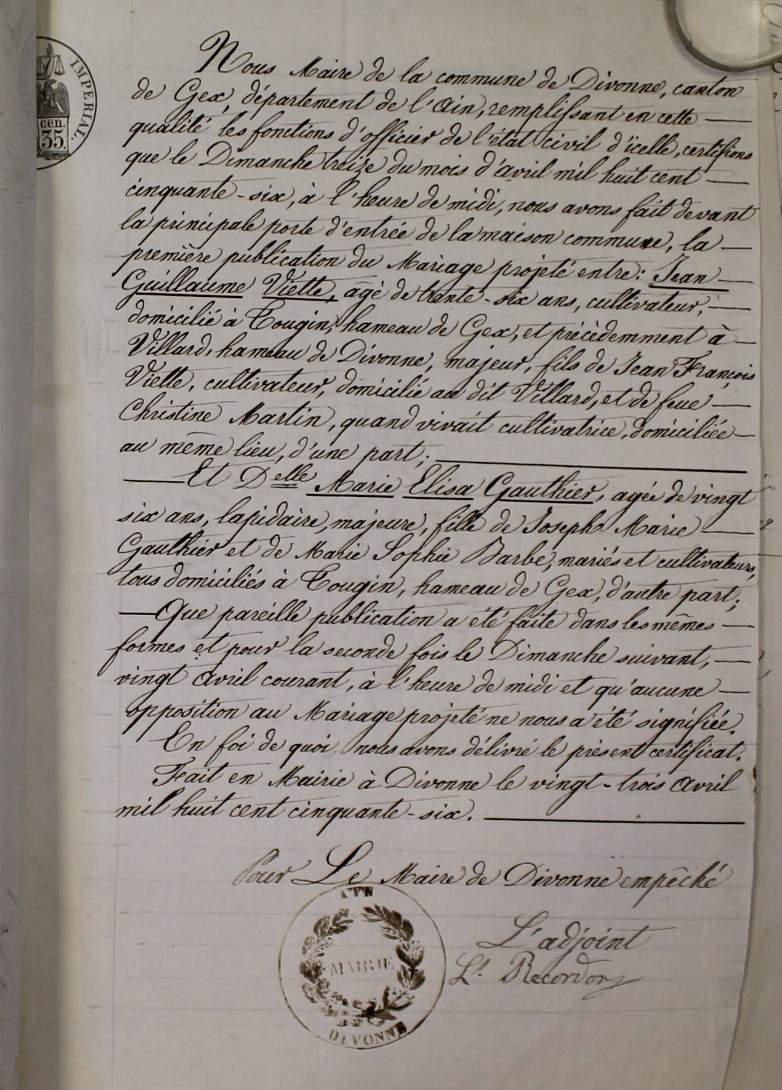 IMPERIAL.
35. cen.
Nous Maire de la commune de Divonne, canton
de Gex, département de l'ain, remplissant en cette —
qualité les fonctions d'officier de l'état civil d'icelle, certifions
que le Dimanche treize du mois d'avril mil huit cent —
cinquante-six, à l'heure de midi, nous avons fait devant
la principale porte d'entrée de la maison commune, la —
première publication du Mariage projeté entre: Jean —
Guillaume Viette, agé de trente-six ans, cultivateur, —
domicilié à Tougin, hameau de Gex, et précèdemment à —
Villard, hameau de Divonne, majeur, fils de Jean François
Viette, cultivateur, domicilié au dit Villard, et de feue —
Christine Martin, quand vivait cultivatrice, domiciliée —
au même lieu, d'une part; —
— Et Delle Marie Elisa Gauthier, agée de vingt
six ans, lapidaire, majeure, fille de Joseph Marie —
Gauthier et de Marie Sophie Barbe, mariés et cultivateurs,
tous domiciliés à Tougin, hameau de Gex, d'autre part;
— Que pareille publication a été faite dans les mêmes —
formes et pour la seconde fois le Dimanche suivant, —
vingt avril courant, à l'heure de midi et qu'aucune —
opposition au Mariage projeté ne nous a été signifiée.
En foi de quoi nous avons délivré le présent certificat.
Fait en Mairie à Divonne le vingt-trois avril
mil huit cent cinquante-six. —
Pour Le Maire de Divonne empêché
L'adjoint
Ls. Recordon
AIN
MAIRIE
DIVONNE